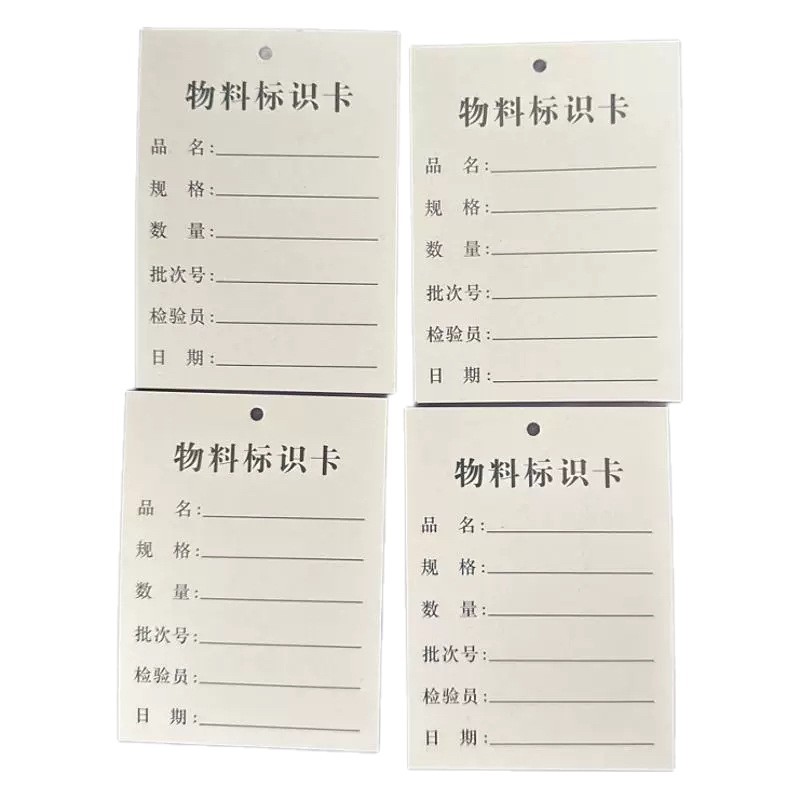 物料标识卡
品 名:
规 格:
数 量:
批次号:
检验员:
日 期:
物料标识卡
品 名:
规 格:
数 量:
批次号:
检验员:
日 期:
物料标识卡
品 名:
规 格:
数 量:
批次号:
检验员:
日 期:
物料标识卡
品 名:
规 格:
数 量:
批次号:
检验员:
日 期: